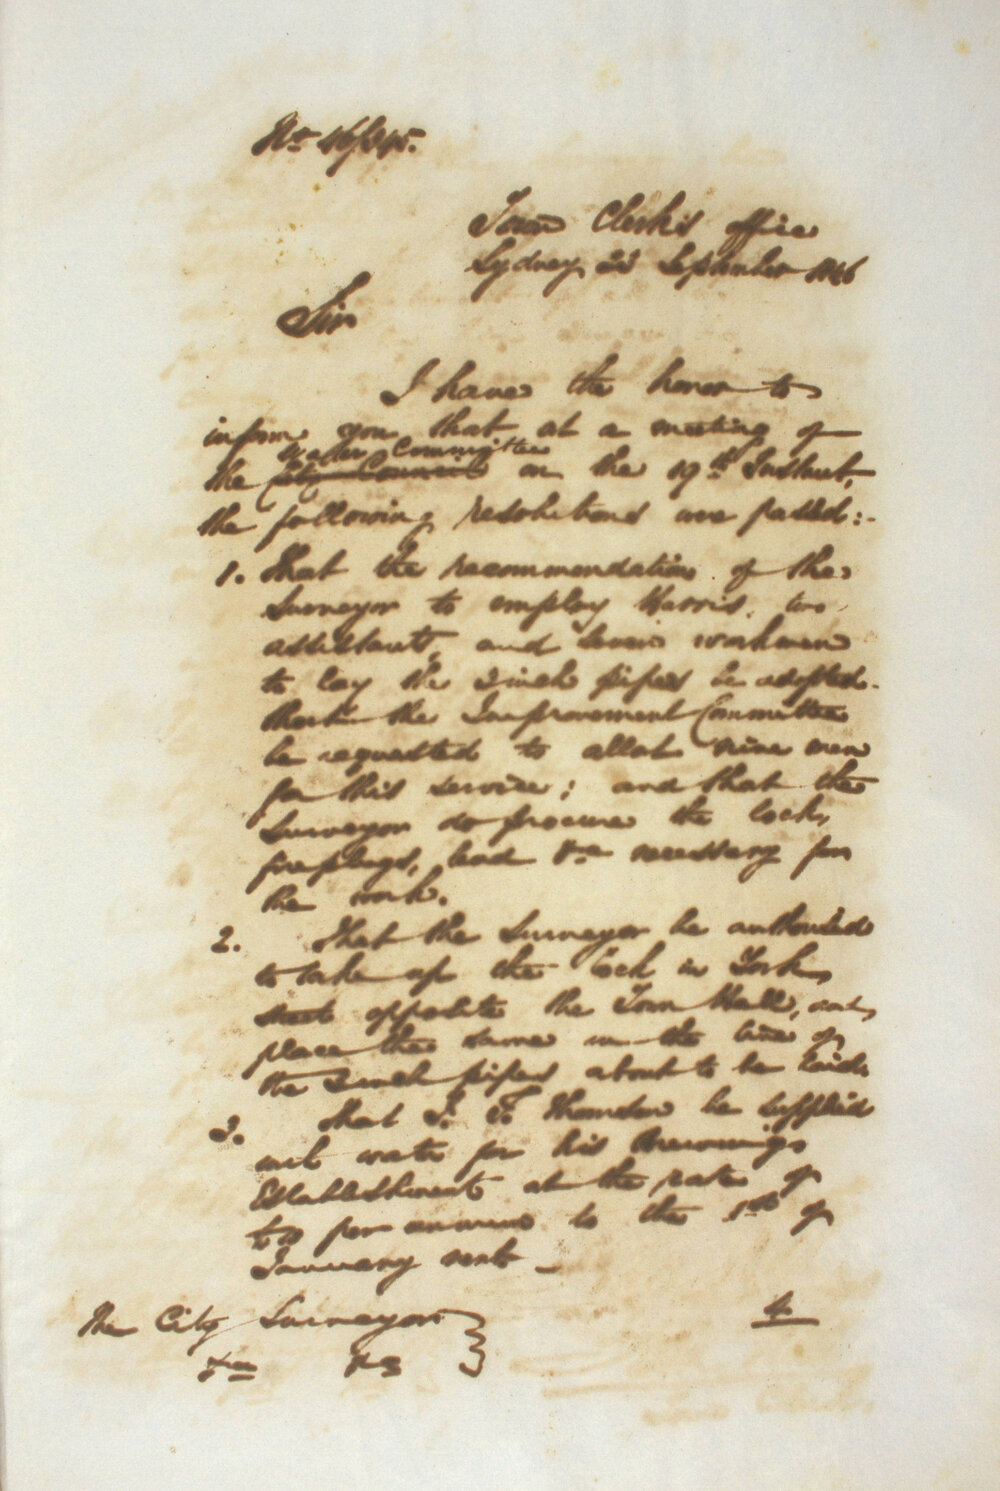 No 46/245.
Town Clerk's office
Sydney 23 September 1846
Sir
I have the honor to
inform you that at a meeting of
Water Committee
the City Council on the 19th Instant,
the following resolutions were passed:-
1. That the recommendation of the
Surveyor to employ Harris, two
assistants, and seven workmen
to lay the 3 inch pipes be adopted.
that the Improvement Committee
be requested to allot nine men
for this service; and that the
Surveyor do procure the cocks,
fireplugs, lead &c necessary for
the work.
2. That the Surveyor be authorised
to take up the Cock in York
street opposite the Town Hall, and
place the same in the line of
the 3 inch pipes about to be laid.
3. That J. T. be supplied
with water for his Brewing
Establishment at the rate of
per annum to the 1st of
January next _
4
The City Surveyor
&c &c